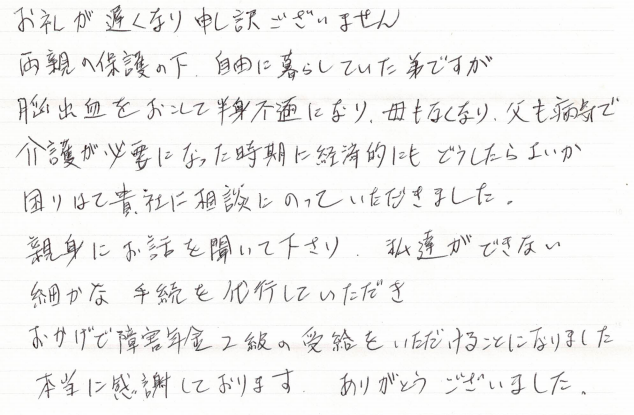 お礼が遅くなり申し訳ございません
両親の保護の下、自由に暮らしていた弟ですが
脳出血をおこして半身不随になり、母も亡くなり、父も病気で
介護が必要になった時期に経済的にも どうしたらよいか
困りはて貴社に相談にのっていただきました。
親身にお話を聞いて下さり、私達ができない
細かな 手続を代行していただき
おかげで障害年金2級の受給をいただけることになりました
本当に感謝しております。 ありがとう ございました。